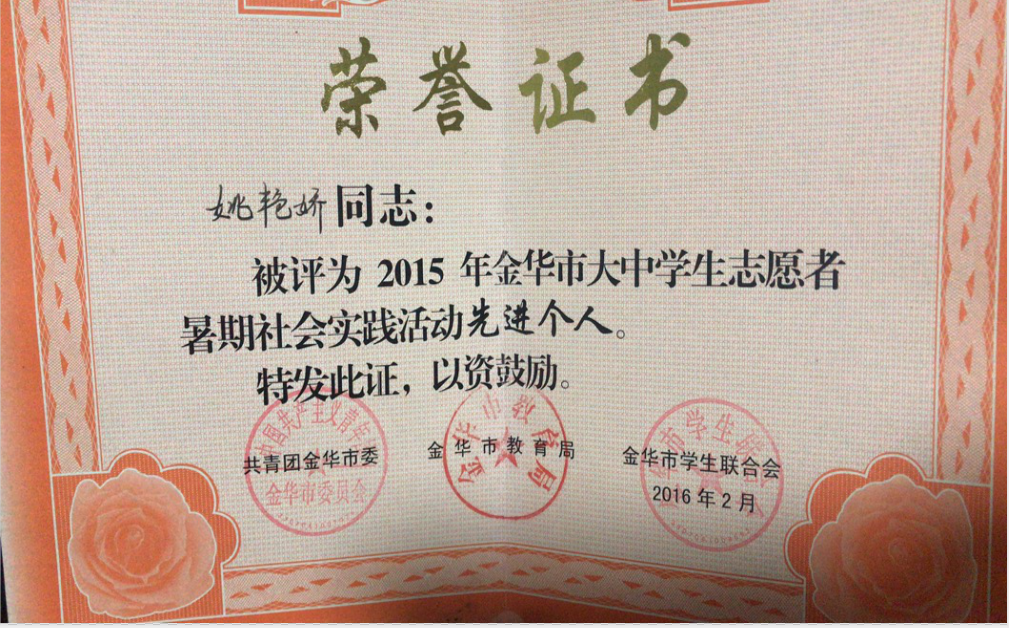 荣誉证书
姚艳娇同志：
被评为 2015 年金华市大中学生志愿者
暑期社会实践活动先进个人。
特发此证，以资鼓励。
共青团金华市委
金华市教育局
金华市学生联合会
2016 年 2 月
中国共产主义青年
金华市委员会
金华市教育局
市学生联合会